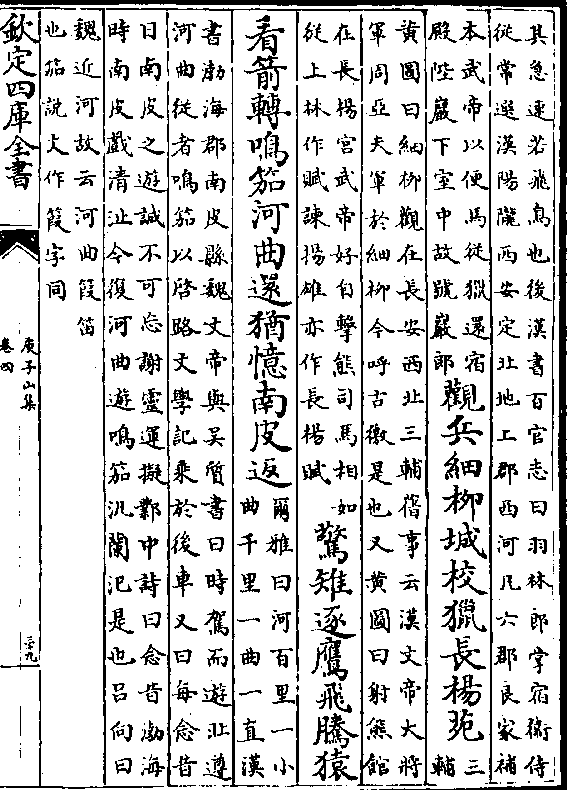 其急速若飛鳥也後漢書百官志曰羽林郎掌宿衛侍
從常選漢陽隴西安定北地上郡西河凡六郡良家補
本武帝以便馬從獵還宿
殿陛巖下室中故號巖郎
觀兵細柳城校獵長楊苑
三輔
黃圖曰細柳觀在長安西北三輔舊事云漢文帝大將
軍周亞夫軍於細柳今呼古徼是也又黃圖曰射熊館
在長楊宮武帝好自擊熊司馬相如
從上林作賦諫揚雄亦作長楊賦
驚雉逐鷹飛騰猿
看箭轉鳴笳河曲還猶憶南皮返
爾雅曰河百里一小
曲千里一曲一直漢
書渤海郡南皮縣魏文帝與吳質書曰時駕而遊北遵
河曲從者鳴笳以啓路文學記乘於後車又曰每念昔
日南皮之遊誠不可忘謝靈運擬鄴中詩曰念昔渤海
時南皮戲清沚今復河曲遊鳴笳汎蘭汜是也呂向曰
魏近河故云河曲葭笛
也笳說文作葭字同
欽定四庫全書
庾子山集
卷四
三九